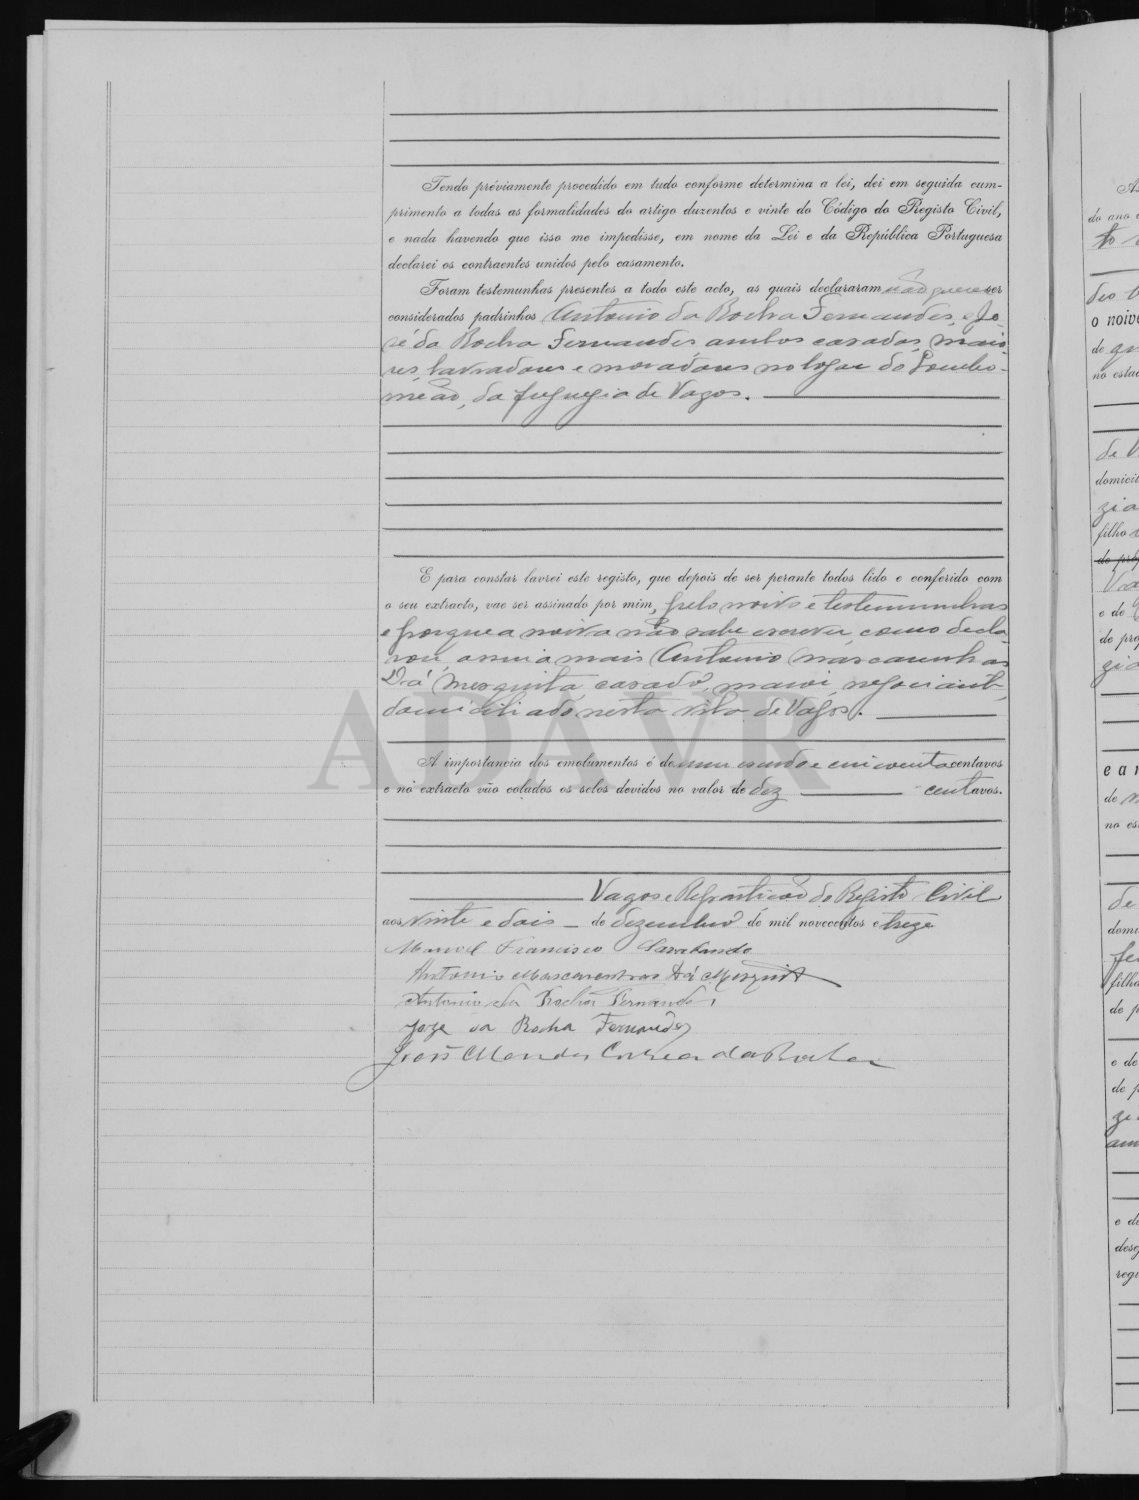 Tendo préviamente procedido em tudo conforme determina a lei, dei em seguida cum-
primento a todas as formalidades do artigo duzentos e vinte do Código do Registo Civil,
e nada havendo que isso me impedisse, em nome da Lei e da República Portuguesa
declarei os contraentes unidos pelo casamento.
Foram testemunhas presentes a todo este acto, as quais declararam não querer ser
considerados padrinhos Antonio da Rocha Fernandes, e Jo-
sé da Rocha Fernandes ambos casados, maio-
res, lavradores e moradores no logar do Lombo-
meão, da freguezia de Vagos.
E para constar lavrei este registo, que depois de ser perante todos lido e conferido com
o seu extracto, vae ser assinado por mim, pelo noivo e testemunhas
e porque a noiva não sabe escrever, como decla-
rou, assina mais Antonio Mascarenhas
Dá Mesquita, casado, maior, negociante,
domiciliado nesta vila de Vagos.
A importancia dos emolumentos é de um escudo e cincoenta centavos
e no extracto vão colados os selos devidos no valor de dez centavos.
Vagos e Repartição do Registo Civil
aos vinte e dois de dezembro de mil novecentos e treze
Manoel Francisco Sarabando
Antonio Mascarenhas Dá Mesquita
Antonio da Rocha Fernandes
Joze da Rocha Fernandes
João Mendes Correia da Rocha
ADAVR
do ano
o noivo
de
no estad
de V
domicil
zia
filho
do pro
e de
de pro
zia
car
de
no es
de
domi
filha
de p
e de
de p
e de
dese
regi